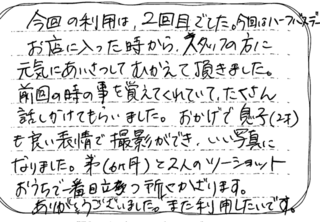 今回の利用は、2回目でした。今回はハーフバースデー
お店に入った時から、スタッフの方に
元気にあいさつしてむかえて頂きました。
前回の時の事を覚えてくれていて、たくさん
話しかけてもらいました。おかげで息子(2才)
も良い表情で撮影ができ、いい写真に
なりました。弟(6ヶ月)と2人のツーショット
おうちで一番目立つ所にかざります。
ありがとうございました。また利用したいです。